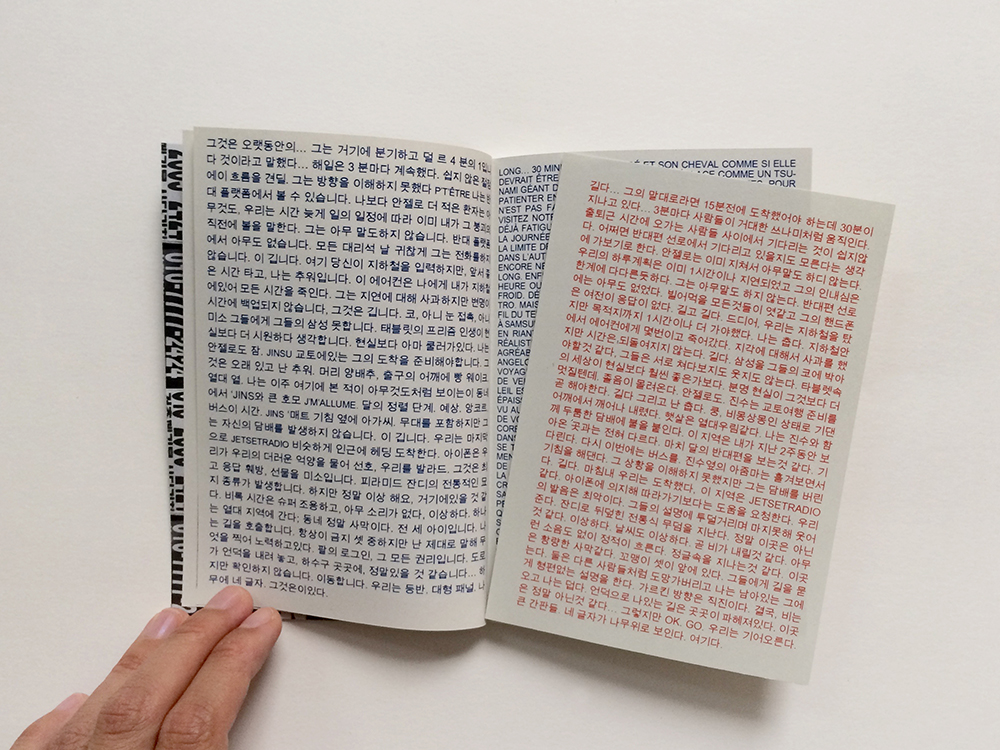 그것은 오랫동안의... 그는 거기에 분기하고 덜 르 4 분의 1입니
다 것이라고 말했다... 해일은 3 분마다 계속했다. 쉽지 않은 절망
에이 흐름을 견딜. 그는 방향을 이해하지 못했다 PTÉTRE 나는 반
대 플랫폼에서 볼 수 있습니다. 나보다 안젤로 더 적은 한자는 아
무것도, 우리는 시간 늦게 일의 일정에 따라 이미 내가 그 붕괴의
직전에 볼을 말한다. 그는 아무 말도하지 않습니다. 반대 플랫폼
에서 아무도 없습니다. 모든 대리석 날 귀찮게 그는 전화를하지
않습니다. 이 깁니다. 여기 당신이 지하철을 입력하지만, 앞서 좋
은 시간 타고, 나는 추워입니다. 이 에어컨은 나에게 내가 지하철
에있어 모든 시간을 죽인다. 그는 지연에 대해 사과하지만 변명이
시간에 백업되지 않습니다. 그것은 깁니다. 코, 아니 눈 접촉, 아니
미소 그들에게 그들의 삼성 못합니다. 태블릿의 프리즘 인생이 현
실보다 더 시원하다 생각합니다. 현실보다 아마 물러가있다. 나는
안젤로도 잠. JINSU 교토에있는 그의 도착을 준비해야합니다. 그
것은 오래 있고 난 추워. 머리 양배추, 출구의 어깨에 빵 웨이크
열대 열. 나는 이주 여기에 본 적이 아무것도처럼 보이는이 동네
에서 'JINS와 큰 호모 J'M'ALLUME. 달의 정렬 단계. 예상. 앙코르
버스이 시간. JINS '매트 기침 옆에 아가씨. 무대를 포함하지만 그
는 자신의 담배를 발생하지 않습니다. 이 깁니다. 우리는 마지막
으로 JETSETRADIO 비슷하게 인근에 헤딩 도착한다. 아이폰은 우
리가 우리의 더러운 억양을 물어 선호, 우리를 발라드. 그것은 최
고 응답 훼방, 선물을 미소입니다. 피라미드 잔디의 전통적인 묘
지 종류가 발생합니다. 하지만 정말 이상 해요, 거기에있을 것 같
다. 비록 시간은 슈퍼 조용하고, 아무 소리가 없다. 이상하다, 하나
는 열대 지역에 간다; 동네 정말 사막이다. 전 세 아이입니다. 나
는 길을 호출합니다. 항상이 금지 셋 중하지만 난 제대로 말해 무
엇을 찍어 노력하고있다. 팔의 로그인, 그 모든 권리입니다. 도로
가 언덕을 내려 놓고, 하수구 곳곳에, 정말있을 것 같습니다... 하
지만 확인하지 않습니다. 이동합니다. 우리는 동반. 대형 패널. 나
무에 네 글자. 그것은이있다.
LONG... 30 MIN
ET SON CHEVAL COMME SI ELLE
DEVRAIT ÊTRE
COMME UN TSU-
NAMI GÉANT D
POUR
PATIENTER EN
N'EST PAS FA
VISITEZ NOTR
DÉJÀ FATIGU
LA JOURNÉE
LA LIMITE DE
DANS L'AUT
ENCORE NE
LONG. ENF
HEURE OU
FROID. DE
TRO. MAIS
TIL DU TE
À SAMSU
EN RIAN
RÉALIST
AGRÉAB
ANGELO
VOYAG
DE VE
LEIL ES
ÉPAIS
VU AU
DE VO
CORE
DANS
SE T
길다... 그의 말대로라면 15분전에 도착했어야 하는데 30분이
지나고 있다... 3분마다 사람들이 거대한 쓰나미처럼 움직인다.
출퇴근 시간에 오가는 사람들 사이에서 기다리는 것이 쉽지않
다. 어쩌면 반대편 선로에서 기다리고 있을지도 모른다는 생각
에 가보기로 한다. 안젤로는 이미 지쳐서 아무말도 하지 않는다.
우리의 하루계획은 이미 1시간이나 지연되었고 그의 인내심은
한계에 다다른듯하다. 그는 아무말도 하지 않는다. 반대편 선로
에는 아무도 없었다. 빌어먹을 모든것들이 엿같고 그의 핸드폰
은 여전이 응답이 없다. 길고 길다. 드디어, 우리는 지하철을 탔
지만 목적지까지 1시간이나 더 가야했다. 나는 춥다. 지하철안
에서 에어컨에게 몇번이고 죽어간다. 지각에 대해서 사과를 했
지만 시간은 되돌여지지 않는다. 길다. 삼성을 그들의 코에 박아
야할것 같다. 그들은 서로 쳐다보지도 웃지도 않는다. 타블렛속
의 세상이 현실보다 훨씬 좋은가보다. 분명 현실이 그것보다 더
멋질텐데. 졸음이 몰려온다. 안젤로도. 진수는 교토여행 준비를
곧 해야한다. 길다 그리고 난 춥다. 쿵, 비몽상몽인 상태로 기댄
어깨에서 깨어나 내렸다. 햇살은 열대우림같다. 나는 진수와 함
께 두툼한 담배에 불을 붙인다. 이 지역은 내가 지난 2주동안 보
아온 곳과는 전혀 다르다. 마치 달의 반대편을 보는것 같다. 기
다린다. 다시 이번에는 버스를. 진수옆의 아줌마는 흘겨보면서
기침을 해댄다. 그 상황을 이해하지 못했지만 그는 담배를 버린
다. 길다. 마침내 우리는 도착했다, 이 지역은 JETSETRADIO
같다. 아이폰에 의지해 따라가기보다는 도움을 요청한다. 우리
의 발음은 최악이다. 그들의 설명에 투덜거리며 마지못해 웃어
준다. 잔디로 뒤덮힌 전통식 무덤을 지난다. 정말 이곳은 아닌
것 같다, 이상하다. 날씨도 이상하다. 곧 비가 내릴것 같다. 아무
런 소음도 없이 정적이 흐른다. 정글속을 지나는것 같다. 이곳
은 황량한 사막같다. 꼬맹이 셋이 앞에 있다. 그들에게 길을 묻
는다. 둘은 다른 사람들처럼 도망가버리고 나는 남아있는 그에
게 형편없는 설명을 한다. 가르킨 방향은 직진이다. 결국, 비는
오고 나는 덥다. 언덕으로 나있는 길은 곳곳이 파헤져있다. 이곳
은 정말 아닌것 같다... 그렇지만 OK. GO. 우리는 기어오른다.
큰 간판들. 네 글자가 나무위로 보인다. 여기다.